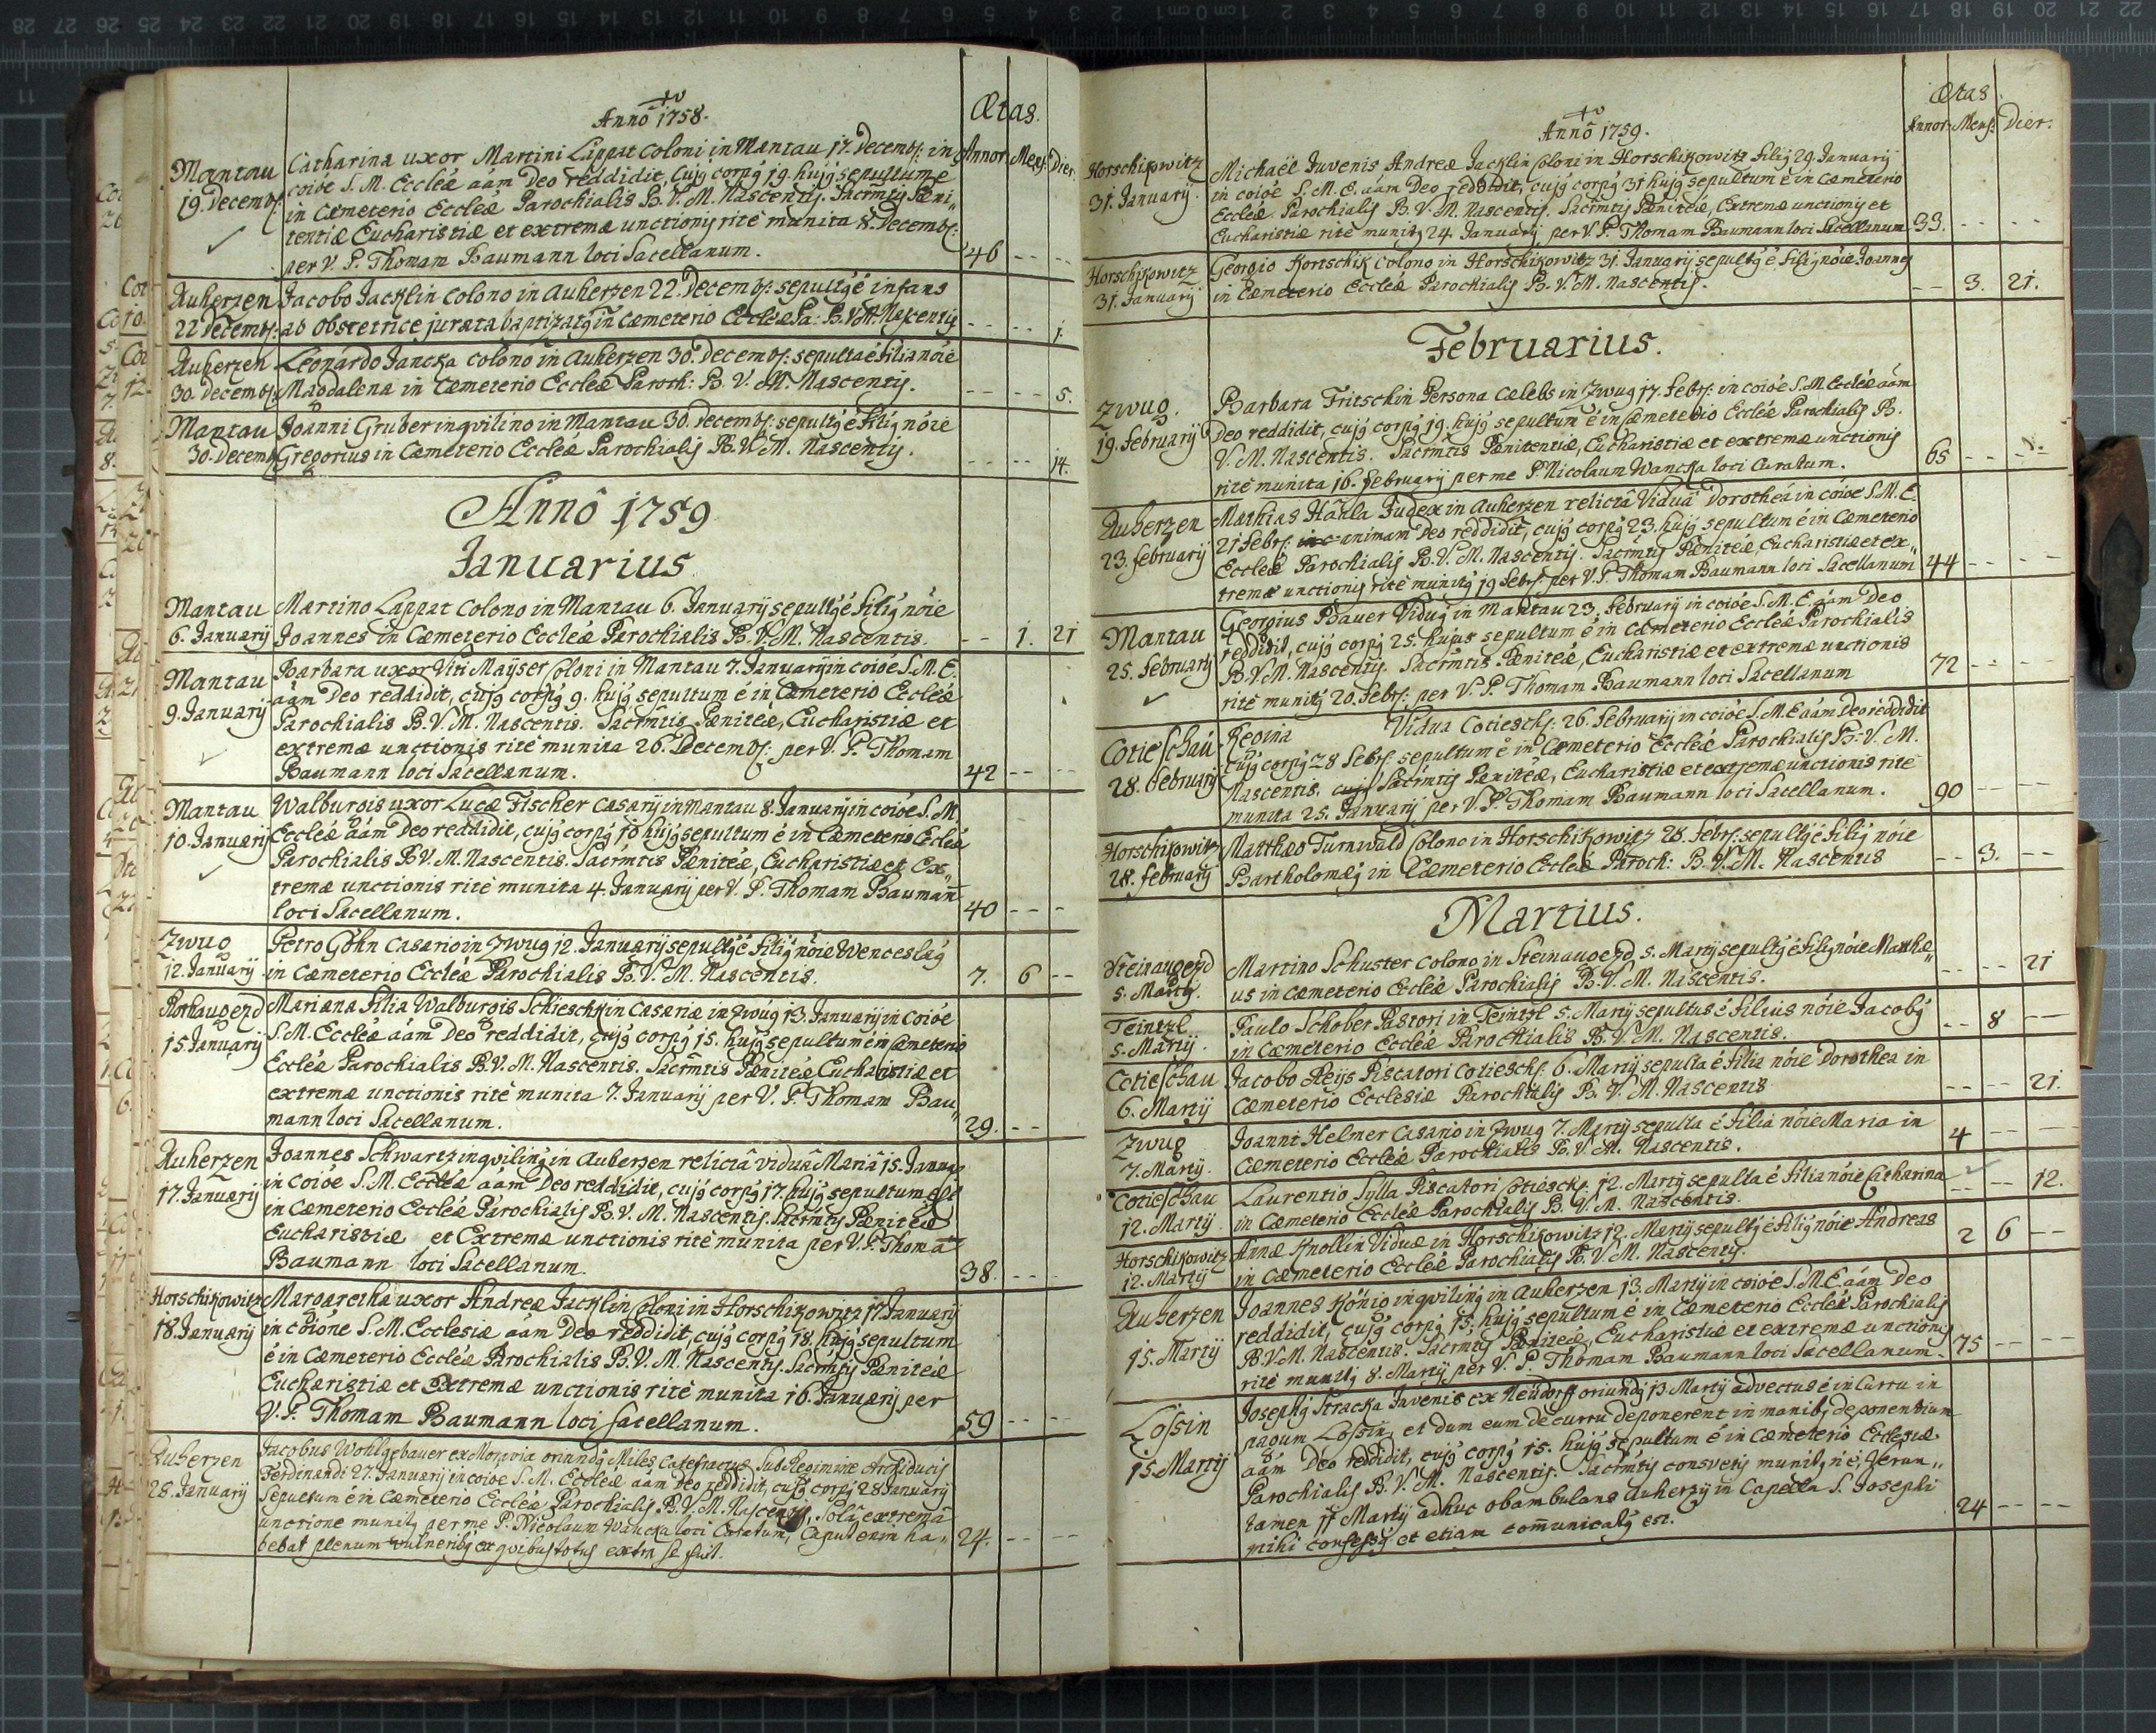 Anno 1758.
Ætas.
Annor. Mens: Dier.
Mantau
19. Decemb:
Catharina uxor Martini Lappat Coloni in Mantau 17. Decemb: in
coiõe S. M. Eccleæ aám Deo reddidit, cujq corpq 19. hujq sepultum e
in Cæmeterio Eccleæ Parochialis B. V. M. Nascentis. Sacrmtis Pæni„
tentiæ Eucharistiæ et extremæ unctionis ritè munita 8. Decemb:
per V. P. Thomam Baumann loci Sacellanum. 46 -- --
Auherzen
22 Decemb:
Jacobo Jacklin Colono in Auherzen 22. Decemb: sepultq é infans
ab obstetrice jurata baptizatq in Cæmeterio Eccleæ Pa: B. V. M. Nascentis -- -- 1.
Auherzen
30. Decemb:
Leonardo Jancka Colono in Auherzen 30. Decemb: sepulta é filia nóie
Magdalena in Cæmeterio Eccleæ Paroch: B. V. M. Nascentis. -- -- 5.
Mantau
30. Decemb:
Joanni Gruber inqvilino in Mantau 30. Decemb: sepultq é filiq nóie
Gregorius in Cæmeterio Eccleæ Parochialis B. V. M. Nascentis. -- -- 14.
Annô 1759
Januarius
Mantau
6. Januarij
Martino Lappat Colono in Mantau 6. Januarij sepultq é filiq nóie
Joannes in Cæmeterio Eccleæ Parochialis B. V. M. Nascentis. -- 1. 21
Mantau
9. Januarij
Barbara uxor Viti Mayser Coloni in Mantau 7. Januarij in coiõe S. M. E.
aám Deo reddidit, cujq corpq 9. hujq sepultum é in Cæmeterio Eccleæ
Parochialis B. V. M. Nascentis. Sacrmtis Pæniteæ, Eucharistiæ et
extremæ unctionis ritè munita 26. Decemb: per V. P. Thomam
Baumann loci Sacellanum. 42 -- --
Mantau
10. Januarij
Walburgis uxor Lucæ Fischer Casarij in Mantau 8. Januarij in coiõe S. M.
Eccleæ aám Deo reddidit, cujq corpq 10 hujq sepultum é in Cæmeterio Eccleæ
Parochialis B. V. M. Nascentis. Sacrmtis Pæniteæ, Eucharistiæ et Ex„
tremæ unctionis ritè munita 4. Januarij per V. P. Thomam Baumañ
loci Sacellanum. 40 -- --
Zwug
12. Januarij
Petro Göhn Casario in Zwug 12. Januarij sepultq é filiq nóie Wenceslaq
in Cæmeterio Eccleæ Parochialis B. V. M. Nascentis. 7. 6 --
Rothaugezd
15. Januarij
Mariana filia Walburgis Schieschkin Casariæ in Zwug 13. Januarij in coiõe
S. M. Eccleæ aám Deo reddidit, cujq corpq 15. hujq sepultum é in Cæmeterio
Eccleæ Parochialis B. V. M. Nascentis. Sacrmtis Pæniteæ Eucharistiæ et
extremæ unctionis ritè munita 7. Januarij per V. P. Thomam Bau„
mann loci Sacellanum. 29. -- --
Auherzen
17. Januarij
Joannes Schwartz inqvilinq in Auherzen relictâ viduâ Mariâ 15. Januar
in coiõe S. M. Eccleæ aám Deo reddidit, cujq corpq 17. hujq sepultum est
in Cæmeterio Eccleæ Parochialis B. V. M. Nascentis. Sacrmtis Pæniteæ
Eucharistiæ et Extremæ unctionis ritè munita per V. P. Thomã
Baumann loci Sacellanum. 38. -- --
Horschikowitz
18. Januarij
Margaretha uxor Andreæ Jacklin Coloni in Horschikowitz 17 Januarij
in coiõne S. M. Ecclesiæ aám Deo reddidit, cujq corpq 18. hujq sepultum
é in Cæmeterio Eccleæ Parochialis B. V. M. Nascentis. Sacrmtis Pæniteæ
Eucharistiæ et Extremæ unctionis ritè munita 16. Januarij per
V. P. Thomam Baumann loci Sacellanum. 59 -- --
Auherzen
28. Januarij
Jacobus Wohlgebauer ex Moravia oriundq Miles Catefractus Sub Regimine Archiducis
Ferdinandi 27. Januarij in coiõe S. M. Eccleæ aám Deo reddidit, cujq corpq 28 Januarij
Sepultum é in Cæmeterio Eccleæ Parochialis B. V. M. Nascentis, Sola extrema
unctione munitq per me P. Nicolaum Wancka loci Curatum, Caput enim ha„
bebat plenum vulneribq ex quibus totus extra se fuit. 24. -- --
Anno 1759.
Ætas
Annor. Mens: Dier.
Horschikowitz
31. Januarij
Michaël Juvenis Andreæ Jacklin Coloni in Horschikowitz filiq 29. Januarij
in coiõe S. M. E. aám Deo reddidit, cujq corpq 31 hujq sepultum é in Cæmeterio
Eccleæ Parochialis B. V. M. Nascentis. Sacrmtis Pæniteæ, Extremæ unctionis et
Eucharistiæ ritè munitq 24. Januarij per V. P. Thomam Baumann loci Sacellanum 33. -- --
Horschikowitz
31. Januarij
Georgio Kortschik Colono in Horschikowitz 31. Januarij sepultq é filiq nóie Joannes
in Cæmeterio Eccleæ Parochialis B. V. M. Nascentis. -- 3. 21.
Februarius.
Zwug.
19. Februarij
Barbara Fritschin Persona Cælebs in Zwug 17. Febr: in coiõe S. M. Eccleæ aám
Deo reddidit, cujq corpq 19. hujq sepultum é in Cæmeterio Eccleæ Parochialis B.
V. M. Nascentis. Sacrmtis Pænitentiæ, Eucharistiæ et extremæ unctionis
ritè munita 16. Februarij per me P. Nicolaum Wancka loci Curatum. 65 -- --
Auherzen
23. februarij
Mathias Hanla Judex in Auherzen relictâ Viduâ Dorotheâ in coiõe S. M. E.
21 Febr: animam Deo reddidit, cujq corpq 23. hujq sepultum é in Cæmeterio
Eccleæ Parochialis B. V. M. Nascentis. Sacrmtis Pæniteæ, Eucharistiæ et ex„
tremæ unctionis ritè munitq 19 Febr: per V. P. Thomam Baumann loci Sacellanum 44 -- --
Mantau
25. februarij
Georgius Bauer Viduq in Mantau 23. Februarij in coiõe S. M. E. aám Deo
reddidit, cujq corpq 25. hujus sepultum é in Cæmeterio Eccleæ Parochialis
B. V. M. Nascentis. Sacrmtis Pæniteæ, Eucharistiæ et extremæ unctionis
ritè munitq 20. Febr: per V. P. Thomam Baumann loci Sacellanum 72 -- --
Cotieschau
28. februarij
Regina Vidua Cotiesch: 26. Februarij in coiõe S. M. E. aám Deo reddidit
Cujq corpq 28 Febr: sepultum é in Cæmeterio Eccleæ Parochialis B. V. M.
Nascentis. Sacrmtis Pæniteæ, Eucharistiæ et extremæ unctionis ritè
munita 25. Januarij per V. P. Thomam Baumann loci Sacellanum. 90 -- --
Horschikowitz
28. februarij
Matthæo Turnwald Colono in Horschikowitz 28. Febr: sepultq é filiq nóie
Bartholomæq in Cæmeterio Eccleæ Paroch: B. V. M. Nascentis -- 3. --
Martius.
Steinaugezd
5. Martij.
Martino Schuster Colono in Steinaugezd 5. Martij sepultq é filiq nóie Matthæ„
us in Cæmeterio Eccleæ Parochialis B. V. M. Nascentis. -- -- 21
Teintzl
5. Martij.
Paulo Schober Pastori in Teintzl 5. Martij sepultus é filius nóie Jacobq
in Cæmeterio Eccleæ Parochialis B. V. M. Nascentis. -- 8 --
Cotieschau
6. Martij
Jacobo Reijs Piscatori Cotiesch: 6. Martij sepulta é filia nóie Dorothea in
Cæmeterio Ecclesiæ Parochialis B. V. M. Nascentis -- -- 21.
Zwug
7. Martij.
Joanni Helmer Casario in Zwug 7. Martij sepulta é filia nóie Maria in
Cæmeterio Eccleæ Parochialis B. V. M. Nascentis. 4 -- --
Cotieschau
12. Martij.
Laurentio Sylla Piscatori Cotiesch: 12. Martij sepulta é filia nóie Catharina
in Cæmeterio Eccleæ Parochialis B. V. M. Nascentis. -- -- 12.
Horschikowitz
12. Martij
Annæ Knollin Viduæ in Horschikowitz 12. Martij sepultq é filiq nóie Andreas
in Cæmeterio Eccleæ Parochialis B. V. M. Nascentis. 2 6 --
Auherzen
15. Martij
Joannes König inqvilinq in Auherzen 13. Martij in coiõe S. M. E. aám Deo
reddidit, cujq corpq 15. hujq sepultum é in Cæmeterio Eccleæ Parochialis
B. V. M. Nascentis. Sacrmtis Pæniteæ, Eucharistiæ et extremæ unctionis
ritè munitq 8. Martij per V. P. Thomam Baumann loci Sacellanum. 75 -- --
Lossin
15. Martij
Josephq Stracka Juvenis ex Neudorff oriundq 13. Martij advectus é in Curru in
pagum Lossin, et dum eum de curru deponerent in manibq deponentium
aám Deo reddidit, cujq corpq 15. hujq sepultum é in Cæmeterio Ecclesiæ
Parochialis B. V. M. Nascentis. Sacrmtis consvetis munitq n é,
tamen 11 Martij adhuc obambulans Auherzij in Capella S. Josephi
mihi confessq et etiam com̃unicatq est. 24 -- --